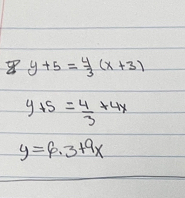 y + 5 = 4/3 (x + 3)
y + 5 = 4/3 + 4x
y = 6.3 + 9x